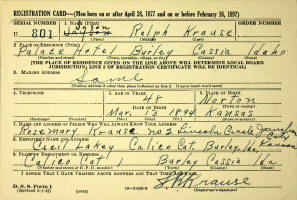 REGISTRATION CARD—(Men born on or after April 28, 1877 and on or before February 16, 1897)
SERIAL NUMBER 1. NAME (Print) ORDER NUMBER
Jason
U 801 Jayson Ralph Krause
(First) (Middle) (Last)
2. PLACE OF RESIDENCE (Print)
Palace Hotel Burley Cassia Idaho
(Number and street) (Town) (County) (State)
[THE PLACE OF RESIDENCE GIVEN ON THE LINE ABOVE WILL DETERMINE LOCAL BOARD
JURISDICTION; LINE 2 OF REGISTRATION CERTIFICATE WILL BE IDENTICAL]
3. MAILING ADDRESS
Same
4. TELEPHONE 5. AGE IN YEARS 6. PLACE OF BIRTH
48 Norton
DATE OF BIRTH
Mar. 13 1894 Kansas
(Mo.) (Day) (Yr.) (State or country)
7. NAME AND ADDRESS OF PERSON WHO WILL ALWAYS KNOW YOUR ADDRESS
Rosemary Krause no 5 Lincoln Circle
Kansas
8. EMPLOYER'S NAME AND ADDRESS
Cecil Lakey Calico Cat, Burley, Ida
9. PLACE OF EMPLOYMENT OR BUSINESS
Calico Cat Burley Cassia Ida
(Number and street or R. F. D. number) (Town) (County) (State)
I AFFIRM THAT I HAVE VERIFIED ABOVE ANSWERS AND THAT THEY ARE TRUE.
D. S. S. Form 1
Krause